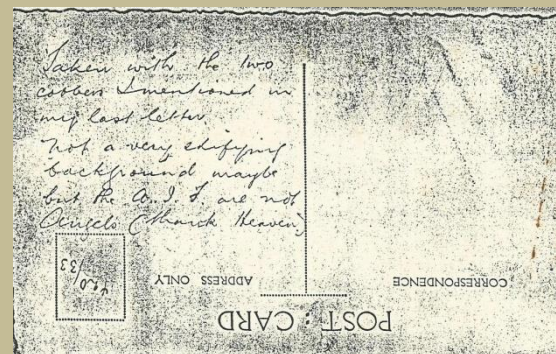 Taken with the two
cobbers I mentioned in
my last letter.
Not a very edifying
background maybe
but the A.I.F. are not
Angels (thank Heaven)
POST CARD
CORRESPONDENCE
ADDRESS ONLY